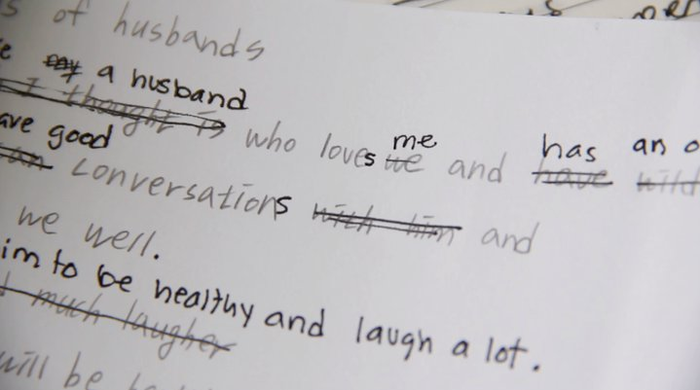 s of husbands
e my a husband
I thought is who loves me we and has have an o wild
ave good
an conversations with him and
we well.
im to be healthy and laugh a lot.
much laugher
will be